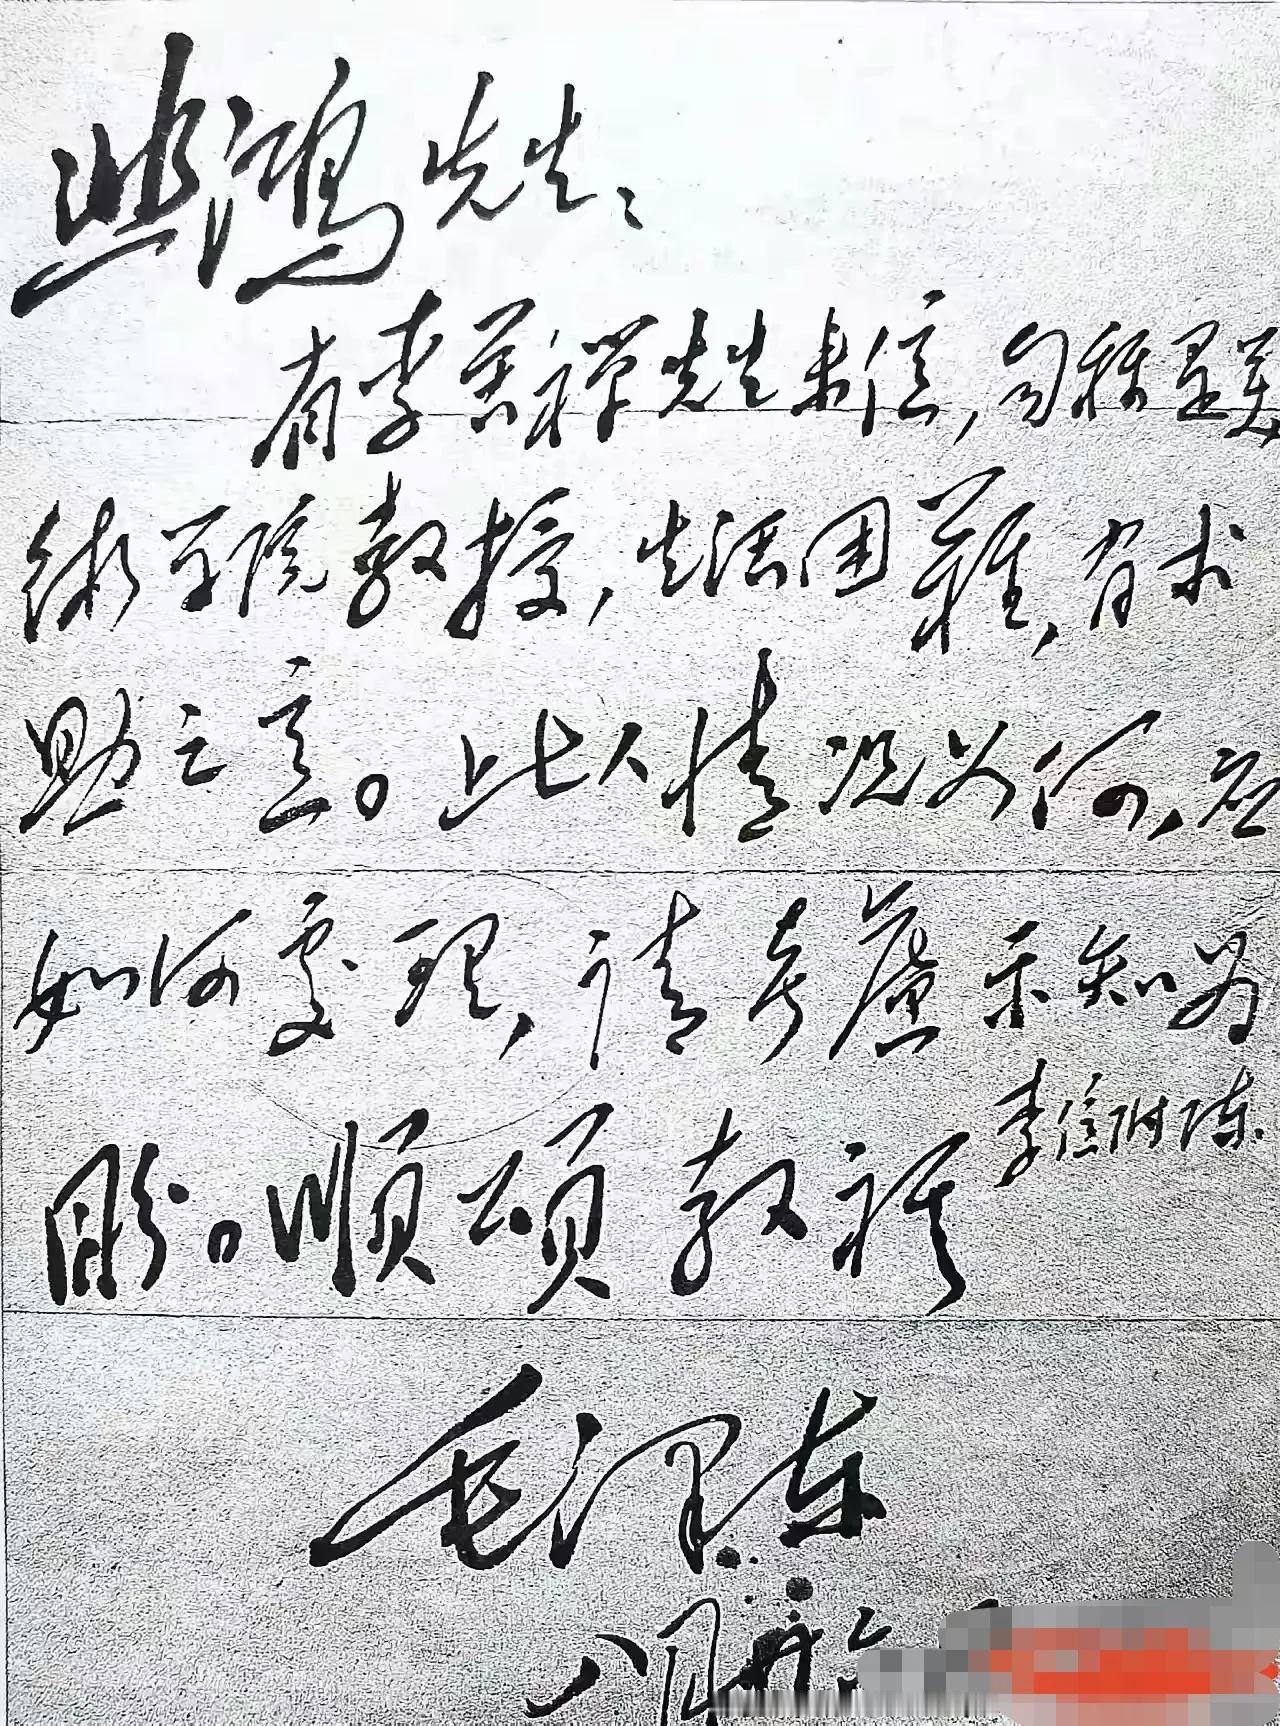 悲鸿先生：
有李苦禅先生来信，自称是美
术学院教授，生活困難，有求
助之意。此人情况如何，应
如何處理，请考慮示知为
盼。顺颂教祺
李信附陈。
毛泽东
八月